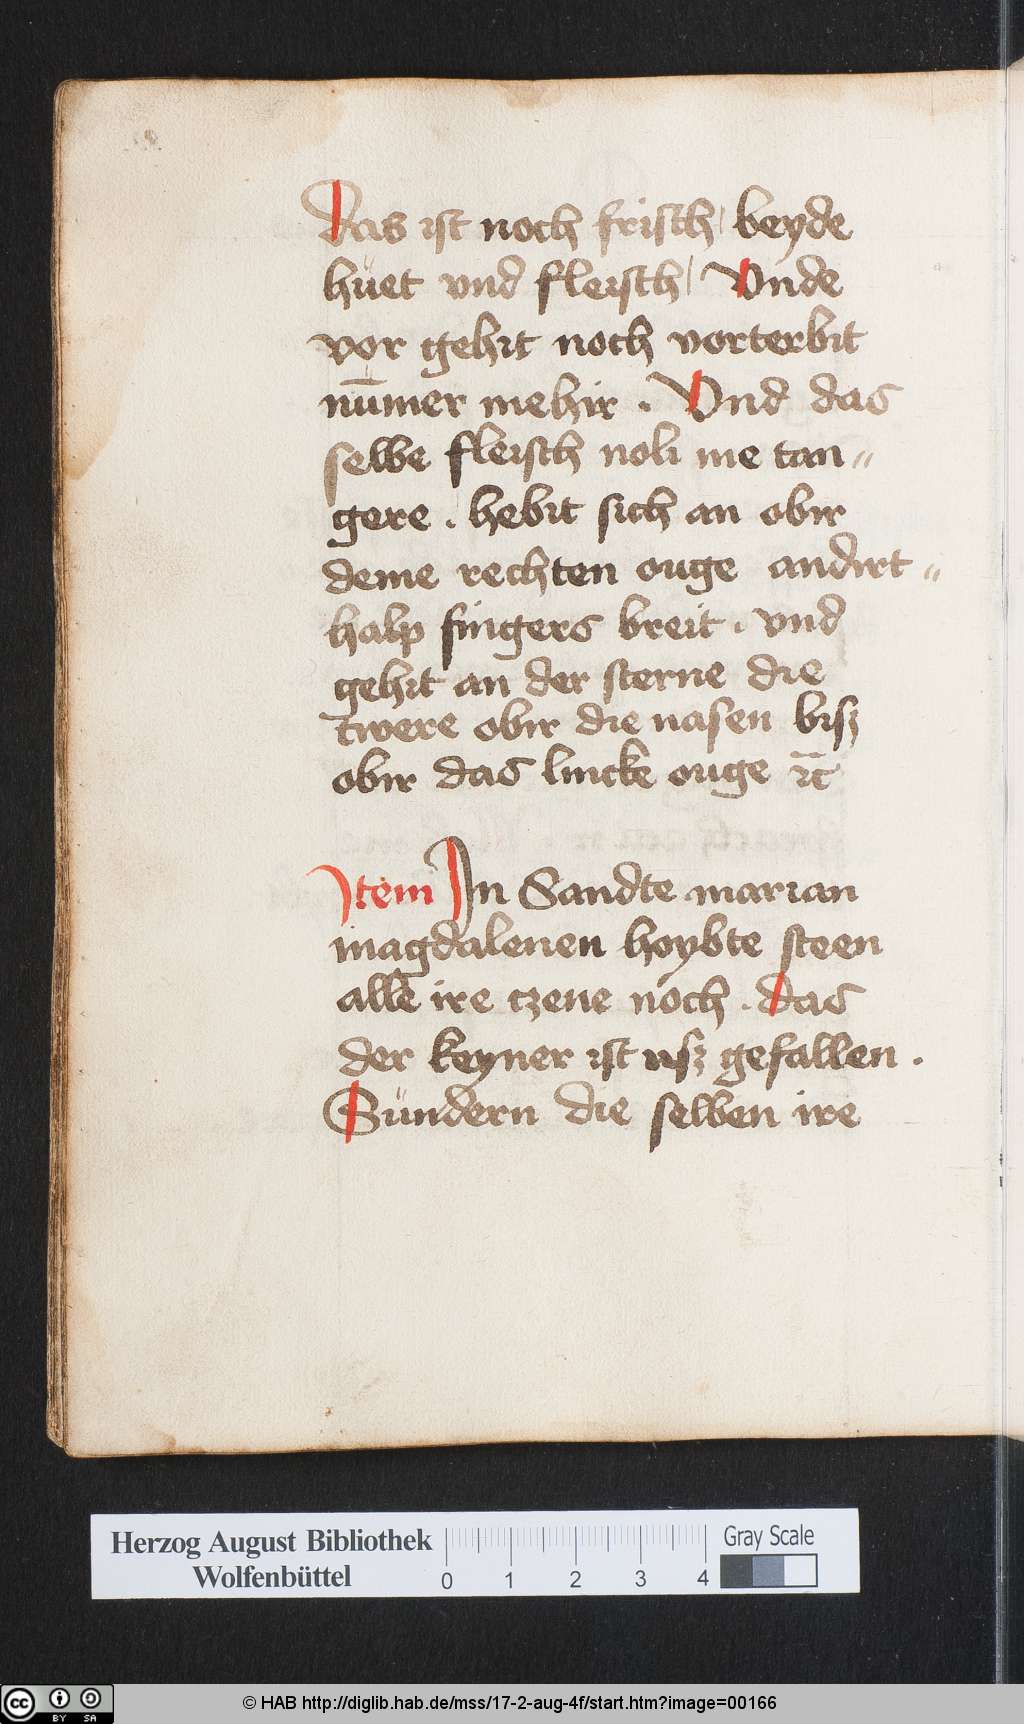 Das ist noch frisch / beyde
huet vnd fleisch / Vnde
vor gehit noch vorterbit
nūmer mehir . Vnd das
selbe fleisch noli me tan〃
gere . hebit sich an obir
deme rechten ouge andirt〃
halp fingers breit . vnd
gehit an der sterne die
twere obir die nasen bisz
obir das lincke ouge ꝛc̄
Item In Sandte marian
magdalenen hoybte steen
alle ire tzene noch . das
der keyner ist usz gefallen .
Sündern die selben ire
Herzog August Bibliothek
Wolfenbüttel
0 1 2 3 4
Gray Scale
cc BY SA
© HAB http://diglib.hab.de/mss/17-2-aug-4f/start.htm?image=00166